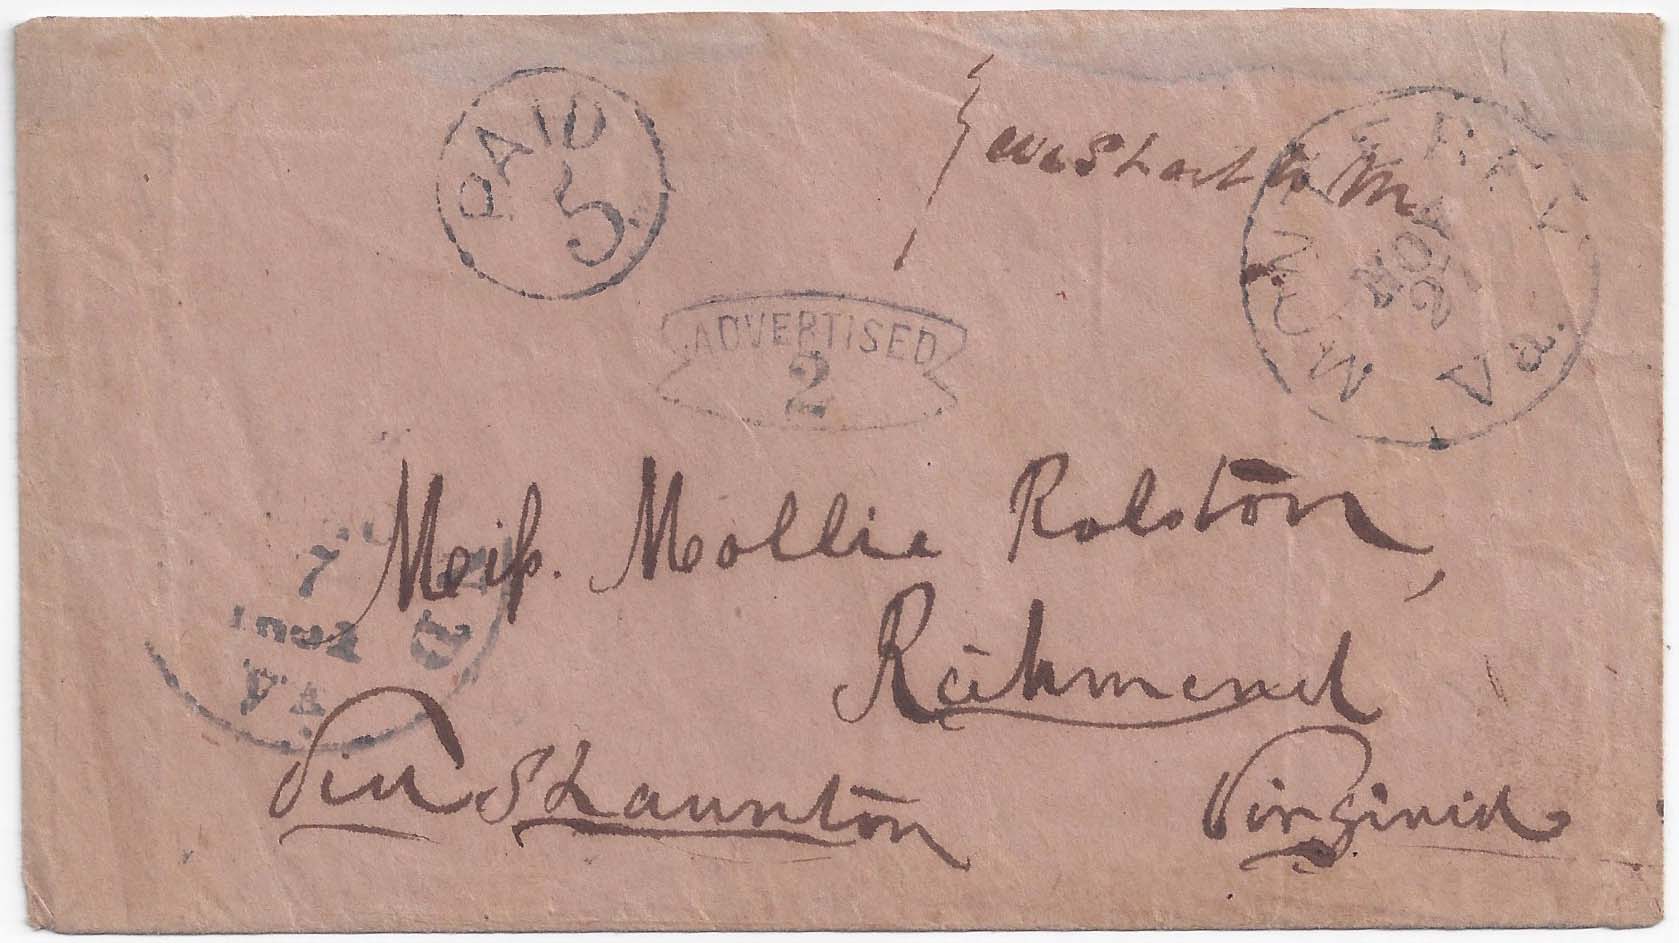 PAID
5
MONTEREY
Va.
NOV
2
ADVERTISED
2
Meiß. Mollie Rolston,
Richmond
Via Staunton Virginia
VA